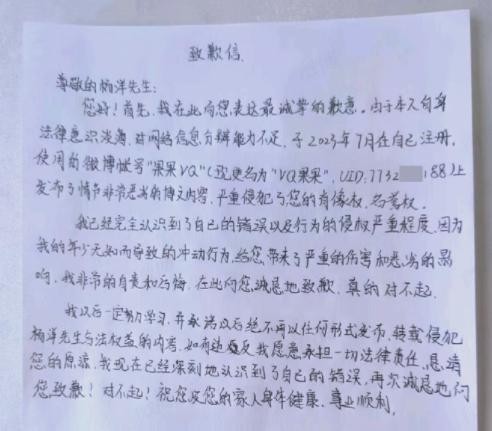 致歉信
尊敬的杨洋先生:
您好!首先,我在此向您表达最诚挚的歉意。由于本人自身
法律意识淡薄,对网络信息分辨能力不足,于2023年7月在自己注册,
使用的微博帐号"果果VQ"(现更名为"VQ果果",UID:7732 188)上
发布了情节非常恶劣的博文内容,严重侵犯了您的肖像权,名誉权。
我已经完全认识到了自己的错误以及行为的侵权严重程度,因为
我的年少无知而导致的冲动行为,给您带来了严重的伤害和恶劣的影
响,我非常的自责和后悔,在此向您诚恳地致歉,真的对不起。
我以后一定努力学习,并承诺以后绝不再以任何形式发布、转载侵犯
杨洋先生合法权益的内容,如有违反我愿意承担一切法律责任,恳请
您的原谅,我现在已经深刻地认识到了自己的错误,再次诚恳地向
您致歉!对不起!祝您及您的家人身体健康,事业顺利。